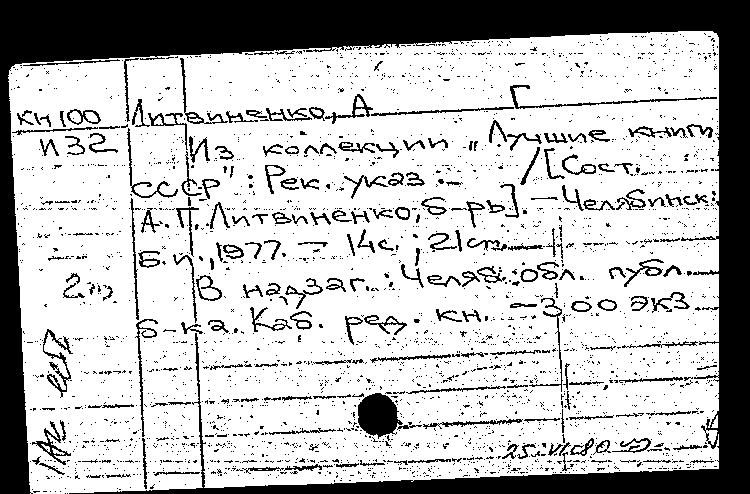 Литвиненко, А Г
КН100
И32
Из коллекции „Лучшие книги
СССР" : Рек. указ. / [Сост.
А. Г. Литвиненко, б-рь]. — Челябинск:
Б. и., 1977. — 14с. ; 21см.
В надзаг. : Челяб. обл. публ.
б-ка. Каб. ред. кн. — 300 экз